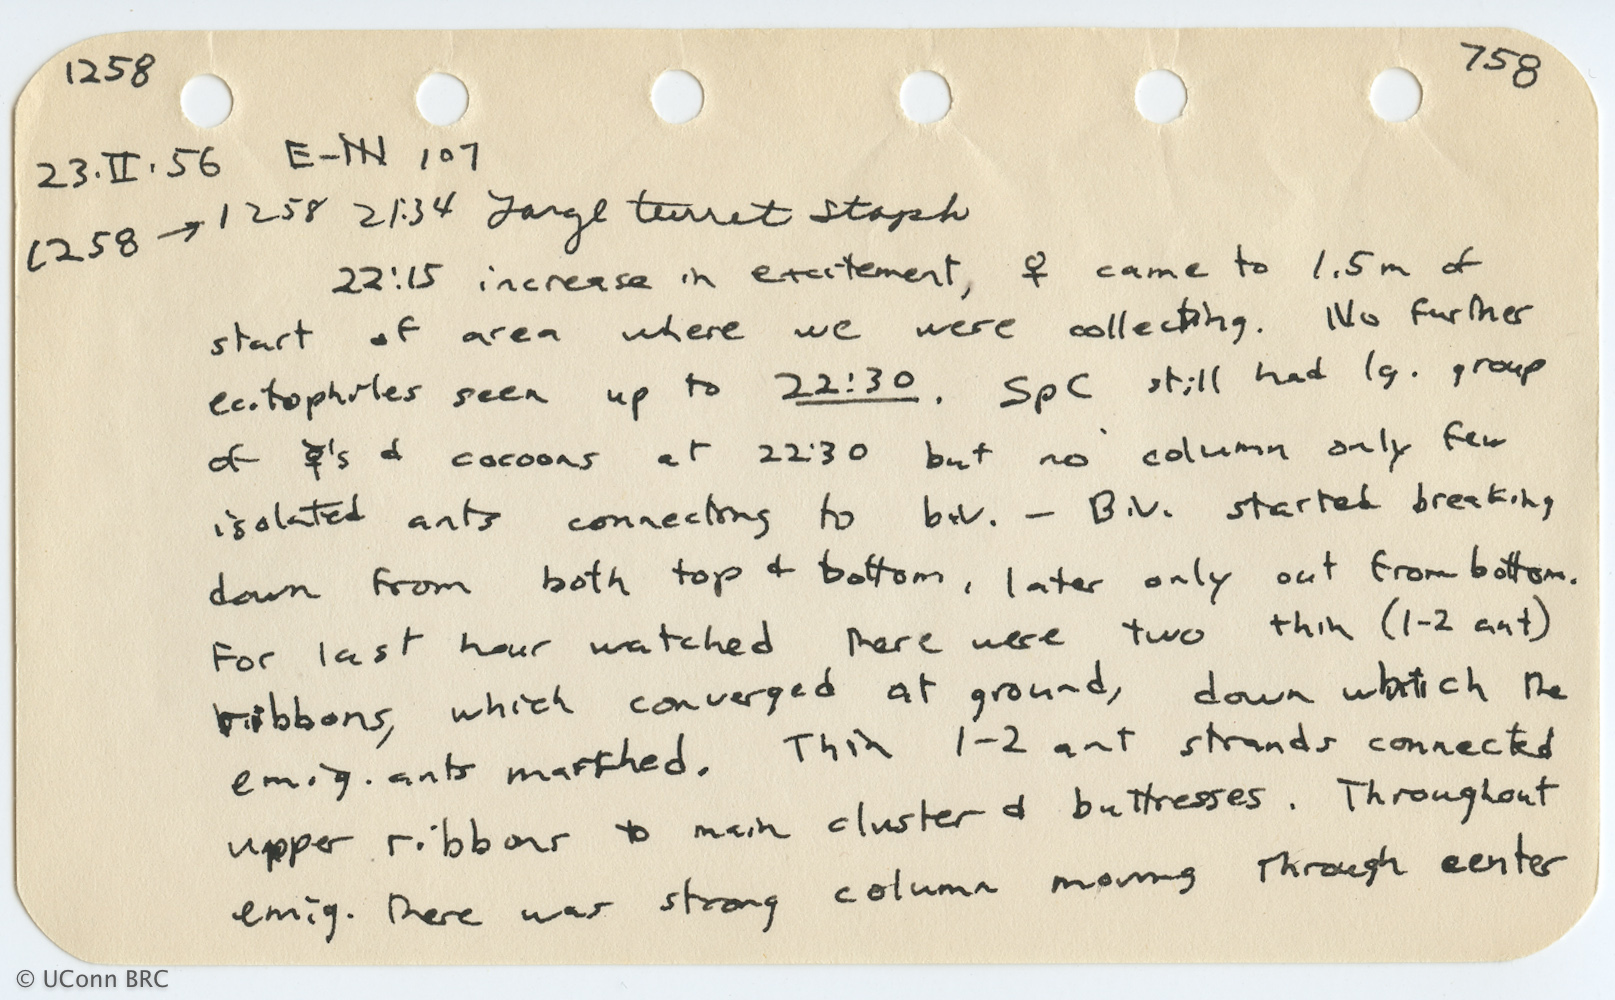 1258 758
23.II.56 E-IN 107
1258 → 1258 21:34 Large turret staph
22:15 increase in excitement, ♀ came to 1.5m of
start of area where we were collecting. No further
ecitophiles seen up to 22:30. SpC still had lg. group
of ☿'s & cocoons at 22:30 but no column only few
isolated ants connecting to biv. - Biv. started breaking
down from both top & bottom, later only out from bottom.
For last hour watched there were two thin (1-2 ant)
ribbons, which converged at ground, down which the
emig. ants marched. Thin 1-2 ant strands connected
upper ribbons to main cluster & buttresses. Throughout
emig. there was strong column moving through center
© UConn BRC